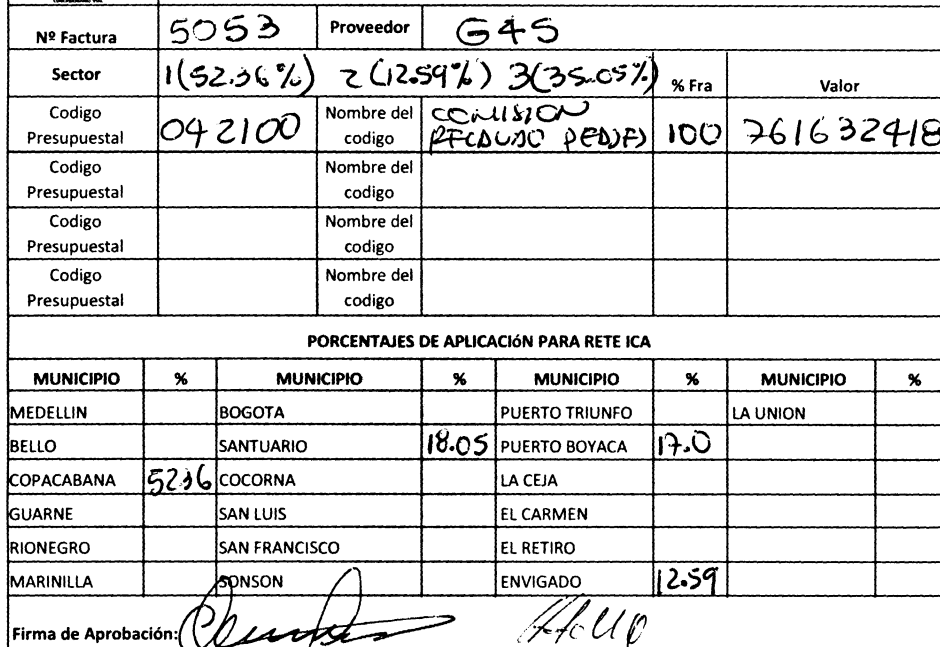 Nº Factura 5053 Proveedor G4S
Sector 1(52.36%) 2(12.59%) 3(35.05%) % Fra Valor
Codigo Presupuestal 042100 Nombre del codigo COMISION RECAUDO PEAJES 100 761632418
Codigo Presupuestal Nombre del codigo
Codigo Presupuestal Nombre del codigo
Codigo Presupuestal Nombre del codigo
PORCENTAJES DE APLICACIÓN PARA RETE ICA
MUNICIPIO % MUNICIPIO % MUNICIPIO % MUNICIPIO %
MEDELLIN BOGOTA PUERTO TRIUNFO LA UNION
BELLO SANTUARIO 18.05 PUERTO BOYACA 17.0
COPACABANA 52.36 COCORNA LA CEJA
GUARNE SAN LUIS EL CARMEN
RIONEGRO SAN FRANCISCO EL RETIRO
MARINILLA SONSON ENVIGADO 12.59
Firma de Aprobación: